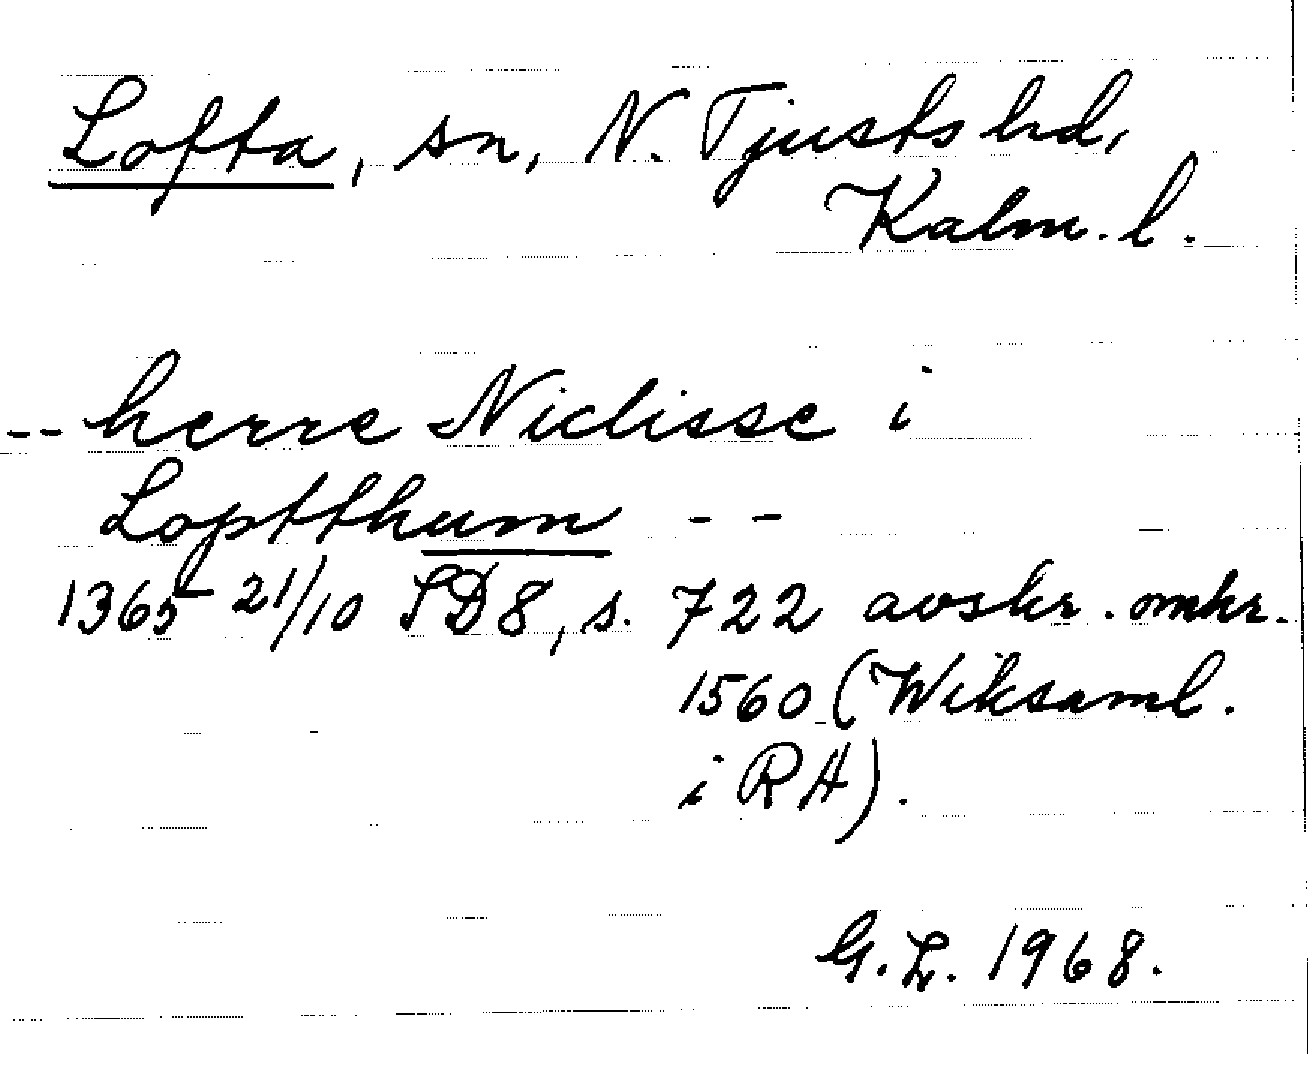 Lofta, sn, N. Tjusts hd,
Kalm. l.
-- herre Niclisse i
Loptthum --
1365 21/10 SD8, s. 722 avskr. omkr.
1560 (Wiksaml.
i RA).
G.L. 1968.